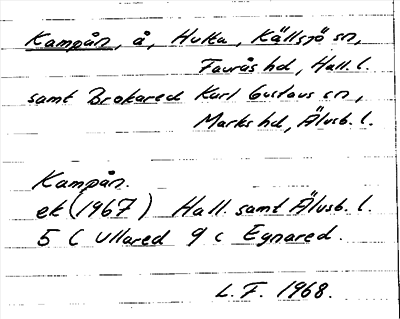 Kampån, å, Hulta, Källsjö sn,
Faurås hd, Hall. l.
samt Brokared Karl Gustavs sn,
Marks hd, Älvsb. l.
Kampån.
ek (1967) Hall. samt Älvsb. l.
5 C Ullared 9 c Egnared.
L. F. 1968.